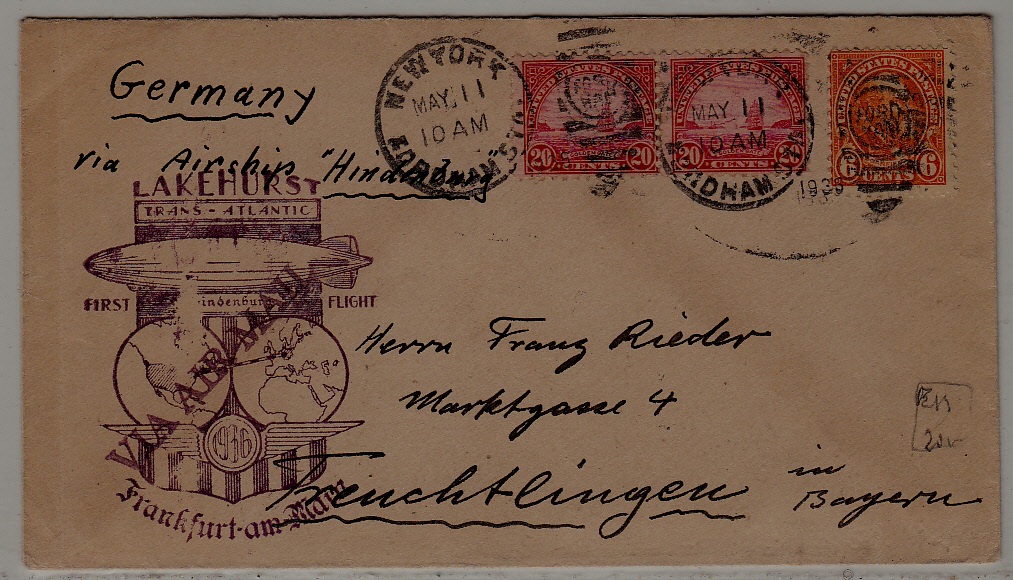 Germany
via Airship "Hindenburg"
NEW YORK
MAY 11
10 AM
FORDHAM STA.
UNITED STATES POSTAGE
20 20
CENTS
UNITED STATES POSTAGE
20
CENTS
MAY 11
10 AM
FORDHAM STA.
UNITED STATES POSTAGE
6 6
CENTS
1936
LAKEHURST
TRANS-ATLANTIC
FIRST Hindenburg FLIGHT
VIA AIR MAIL
1936
Frankfurt-am-Main
Herrn Franz Rieder
Marktgasse 4
Treuchtlingen
in
Bayern